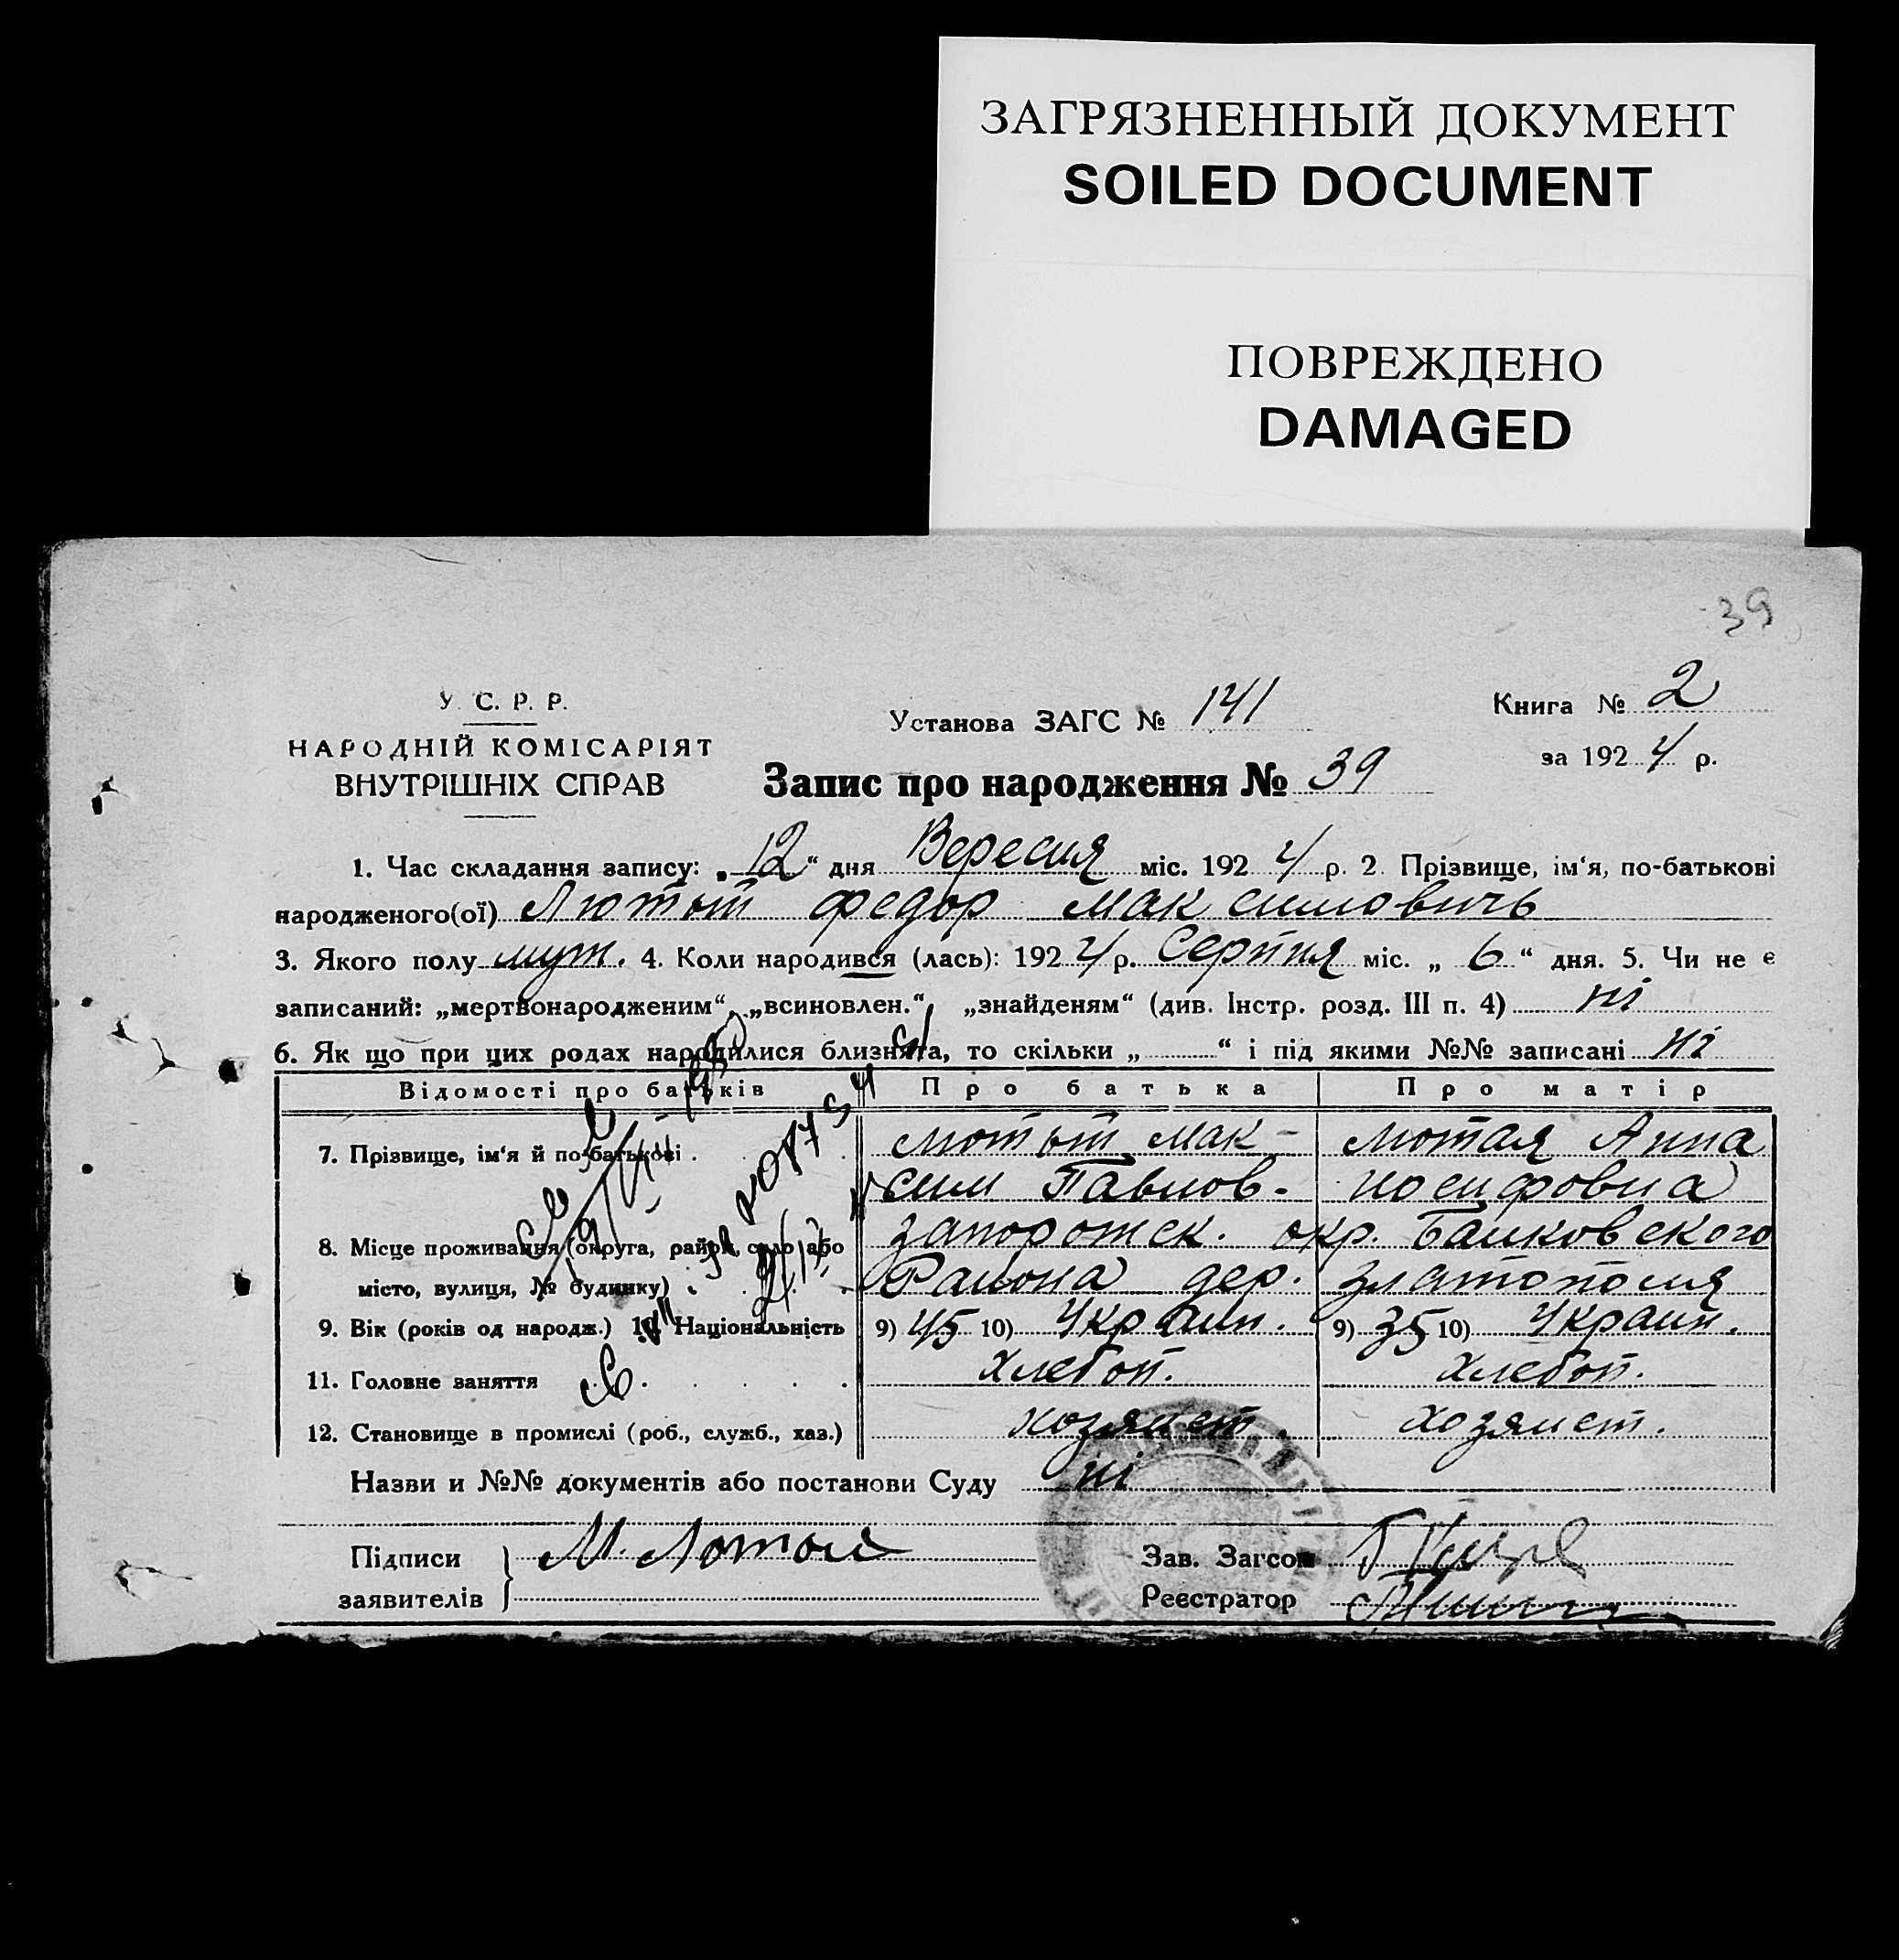 ЗАГРЯЗНЕННЫЙ ДОКУМЕНТ
SOILED DOCUMENT
ПОВРЕЖДЕНО
DAMAGED
39
У. С. Р. Р.
НАРОДНІЙ КОМІСАРІЯТ
ВНУТРІШНІХ СПРАВ
Установа ЗАГС № 141
Книга № 2
за 1924 р.
Запис про народження № 39
1. Час складання запису: „12“ дня Вересня міс. 1924 р. 2. Прізвище, ім‘я, по-батькові
народженого(ої) Лютый Федор Максимовичь
3. Якого полу муж. 4. Коли народився (лась): 1924 р. Серпня міс. „6“ дня. 5. Чи не є
записаний: „мертвонародженим“, „всиновлен.“, „знайденям“ (див. Інстр. розд. III п. 4) ні
6. Як що при цих родах народилися близнята, то скільки „ “ і під якими №№ записані ні
Відомості про батьків Про батька Про матір
7. Прізвище, ім‘я й по-батькові . Лютый Мак- Лютая Анна
сим Павлов. Иосифовна
8. Місце проживання (округа, район, село або Запорожск. окр. Балковского
місто, вулиця, № будинку) Района дер. Златополя
9. Вік (років од народж.) 10. Національність 9) 45 10) Украин. 9) 35 10) Украин.
11. Головне заняття Хлебоп. Хлебоп.
12. Становище в промислі (роб., служб., хаз.) хозяист. хозяист.
Назви и №№ документів або постанови Суду ні
Підписи
заявителів
М. Лютои
Зав. Загсом
Реєстратор